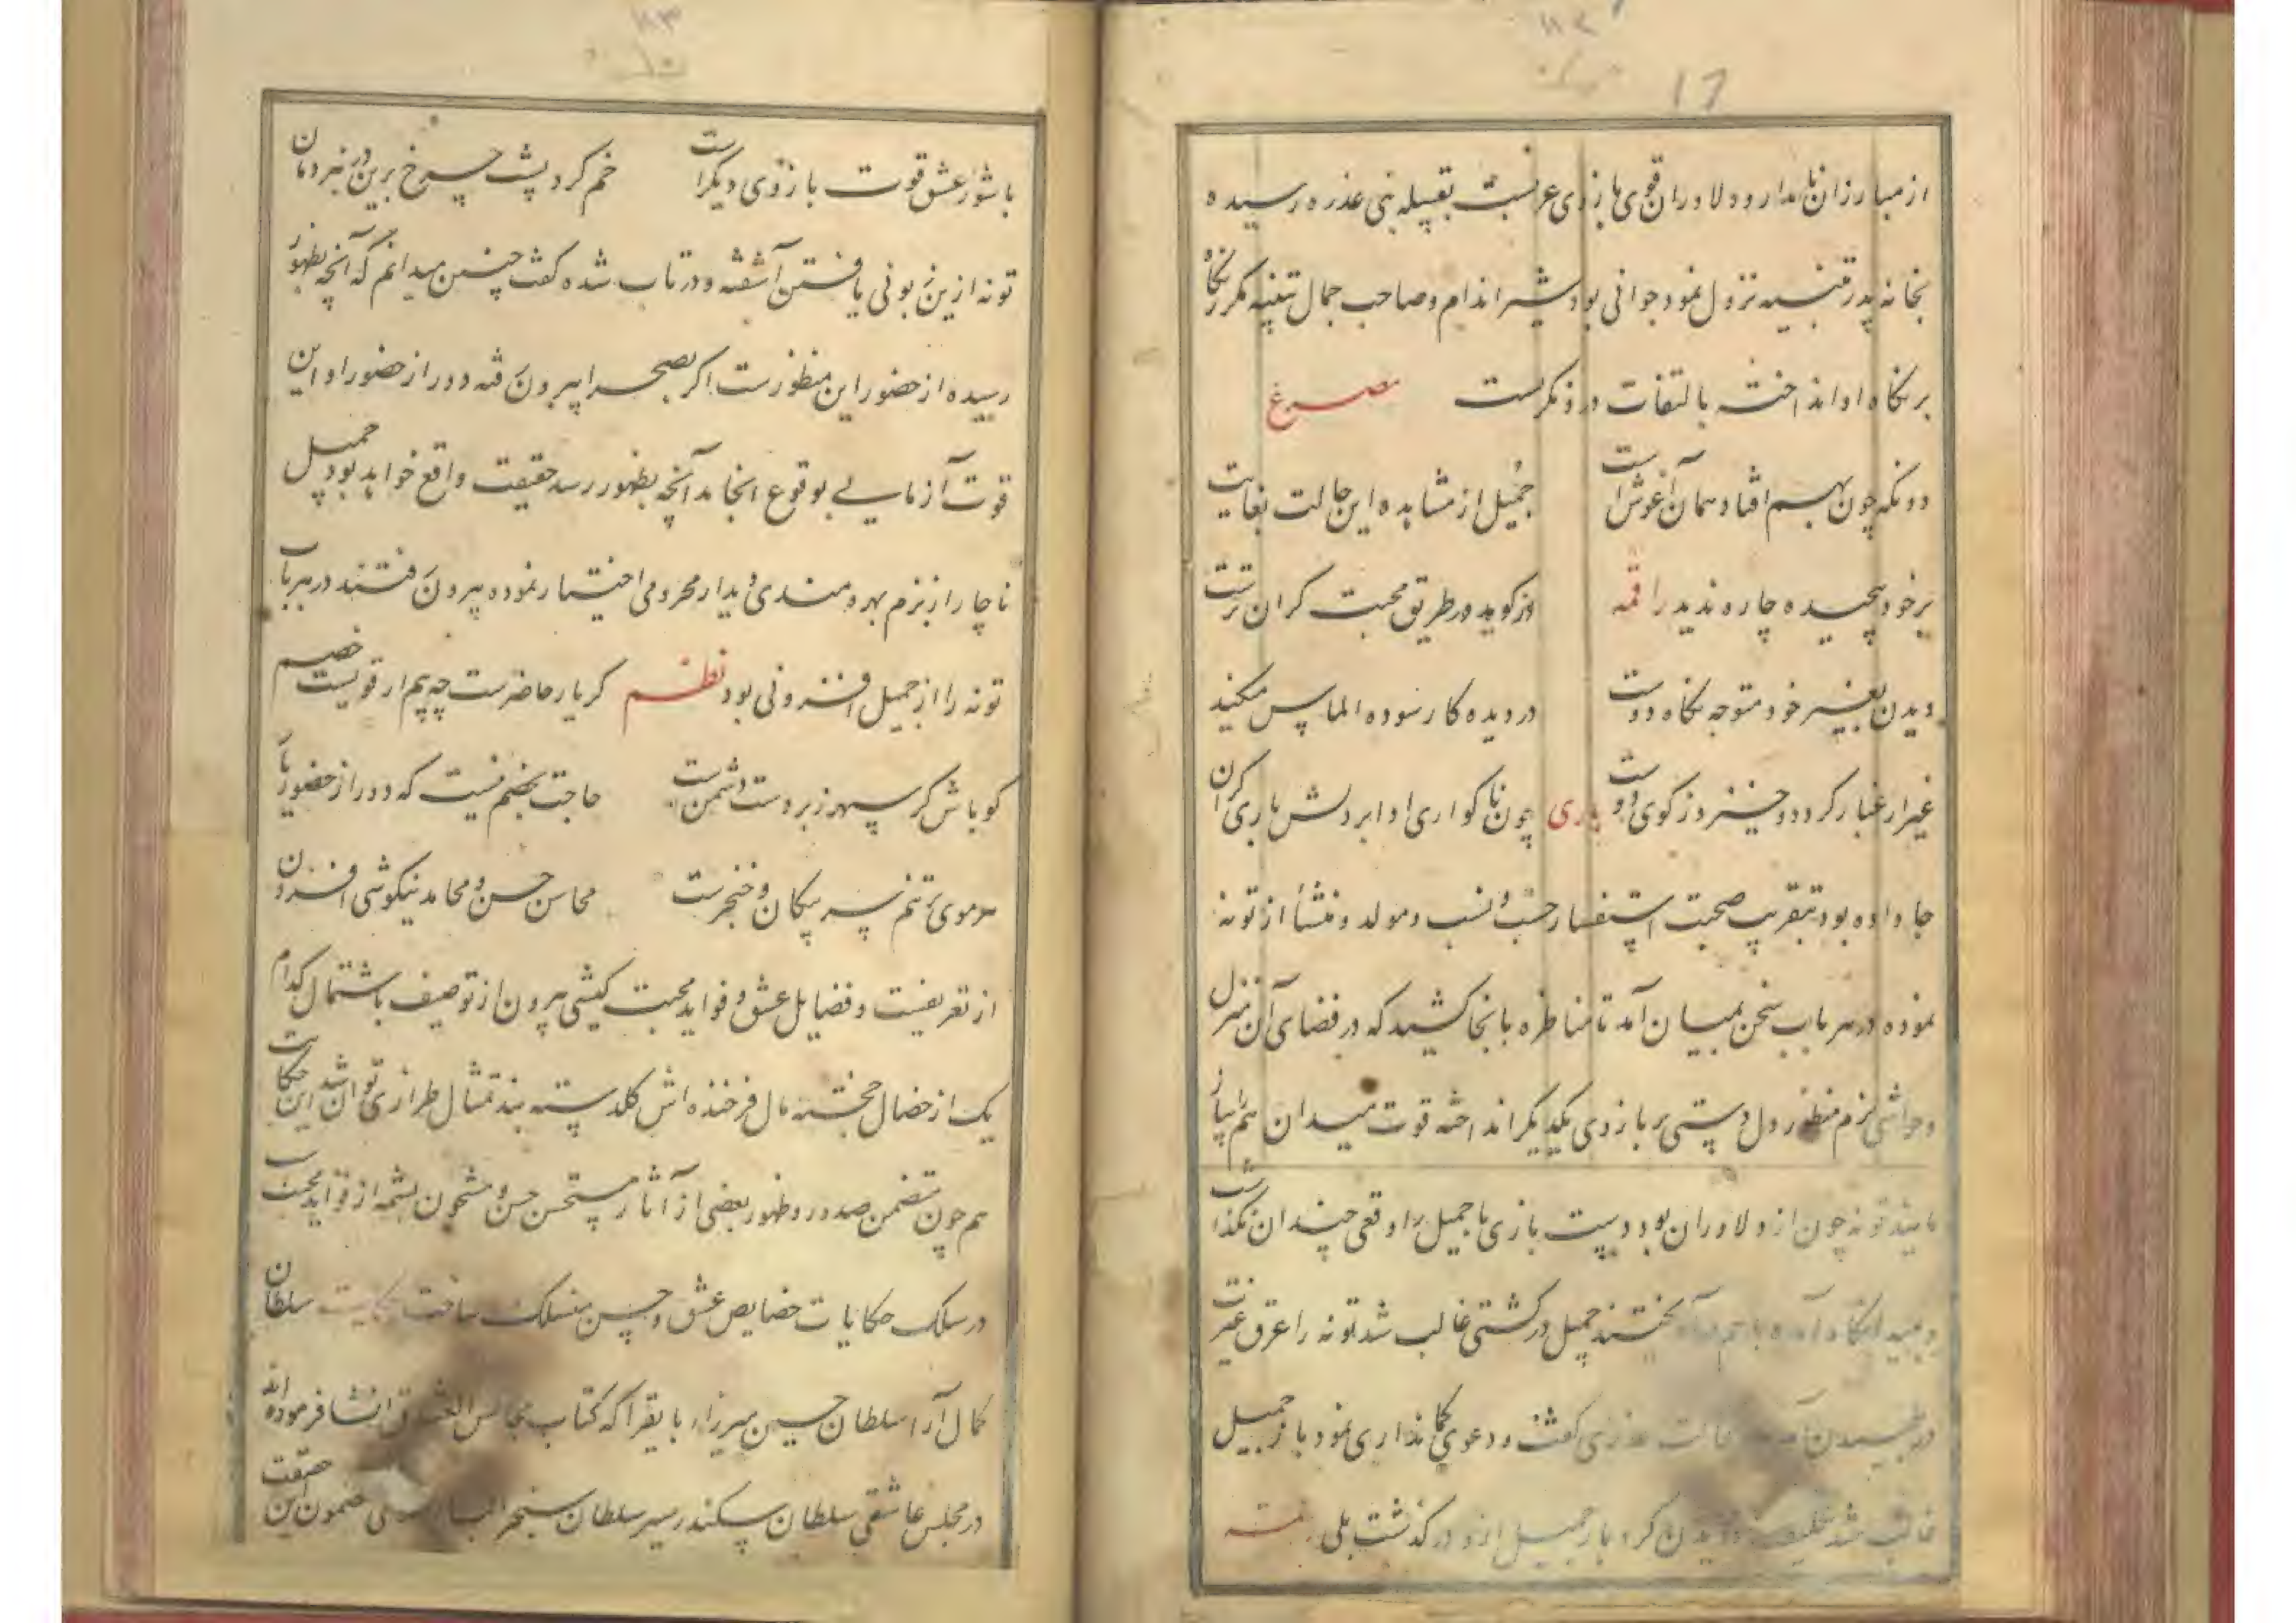 ۸۲
17
از مبارزان نامدار و دلاوران قوی بازوی عرب نسبت بقبیله بنی عذره رسیده
بخانه پدر بثینه نزول نمود جوانی بود شیر اندام و صاحب جمال بثینه مکرر نگاه
بر نگاه او انداخته بالتفات درو نگریست مصرع
دو نگه چون بهم افتاد همان آغوش است جمیل از مشاهده این حالت بغایت
برخود پیچیده چاره ندید راقمه در طریق محبت گران ترست
دیدن بغیر خود متوجه نگاه دوست در دیده کار سوده الماس میکند
غیر ار غبار گردد و خیزد ز کوی دوست باری چون ناگواری او ابر دلش باری گران
جا داده بود بتقریب صحبت استفسار حسب و نسب و مولد و منشأ از توبه
نموده در هر باب سخن بمیان آمد تا مناظره بانجا کشید که در فضای آن منزل
و حواشی بزم منظور دل دستی بر بازوی یکدیگر انداخته قوت میدان هم
توبه چون از دلاوران بود دست بازی با جمیل را وقعی چندان نگذاشت
آمده باهم در آویختند جمیل در کشتی غالب شد توبه را عرق غیرت
عذری گفت و دعوی کمانداری نمود باز جمیل
غالب شد دویدن کرد باز جمیل ازو درگذشت بلی
۸۳
با شور عشق قوت بازوی دیگر است خم کرد پشت چرخ برین در نبرد مان
توبه ازین زبونی یافتن آشفته و در تاب شده گفت چنین میدانم که آنچه بظهور
رسیده از حضور این منظور ست اگر بصحرا بیرون رفته دور از حضور او این
قوت آزمایی بوقوع انجامد آنچه بظهور رسد حقیقت واقع خواهد بود جمیل
ناچار از بزم بهره مندی دیدار محرومی اختیار نموده بیرون رفتند در هر باب
توبه را از جمیل افزونی بود نظم گر یار حاضرست چه بیم ار قویست خصم
گو باش گر سپهر زبردست دشمن است حاجت بخصم نیست که دور از حضور یار
هر موی بر تنم سر پیکان و خنجرست محاسن حسن و محامد نیکوئی افزون
از تعریفست و فضایل عشق و فواید محبت کیشی بیرون از توصیف باشتمال کدام
یک از خصال خجسته مال فرخنده اش گلدسته بند تمثال طرازی توان شد این حکایت
هم چون متضمن صدور و ظهور بعضی از آثار مستحسن حسن و مشحون بشمه از فواید محبت
در سلک حکایات خصایص عشق و حسن منسلک ساخت حکایت سلطان
کمال آرا سلطان حسین میرزا بایقرا که کتاب مجالس العشاق انشا فرموده اند
در مجلس عاشقی سلطان سکندر سیر سلطان سنجر مضمون این حقیقت